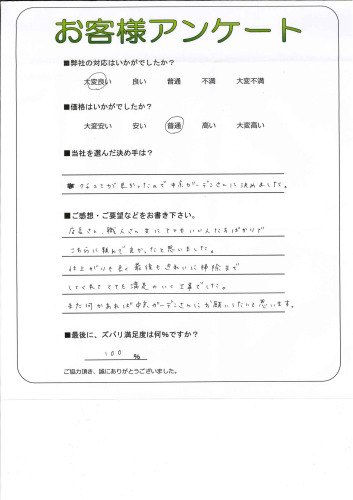 お客様アンケート
■弊社の対応はいかがでしたか？
大変良い 良い 普通 不満 大変不満
■価格はいかがでしたか？
大変安い 安い 普通 高い 大変高い
■当社を選んだ決め手は？
クチコミが良かったので中京ガーデンさんに決めました。
■ご感想・ご要望などをお書き下さい。
店長さん、職人さん共にとてもいい人たちばかりで
こちらに頼んで良かったと思いました。
仕上がりも良く最後もきれいに掃除まで
してくれてとても満足のいく工事でした。
また何かあれば中京ガーデンさんにお願いしたいと思います。
■最後に、ズバリ満足度は何%ですか？
100 %
ご協力頂き、誠にありがとうございました。